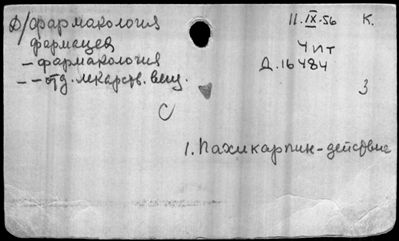 Д/фармакология
11.IX.56 К.
фармацея
Чит
– фармакология
Д.16484
– – отд. лекарств. вещ.
3
С
1. Пахикарпин – действие